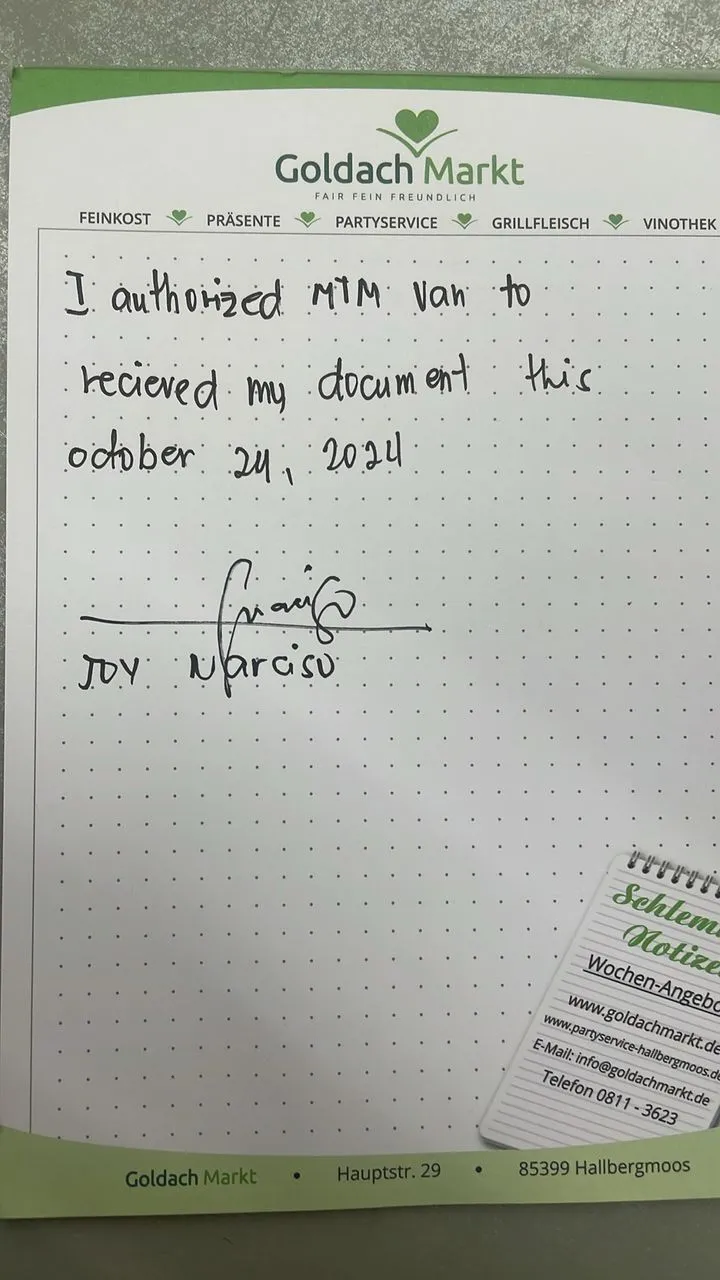 Goldach Markt
FAIR FEIN FREUNDLICH
FEINKOST PRÄSENTE PARTYSERVICE GRILLFLEISCH VINOTHEK
I authorized MTM Van to
recieved my document this
october 24, 2024
JOY Narciso
Wochen-Angebo
www.goldachmarkt.de
www.partyservice-hallbergmoos.de
E-Mail: info@goldachmarkt.de
Telefon 0811 - 3623
Goldach Markt • Hauptstr. 29 • 85399 Hallbergmoos